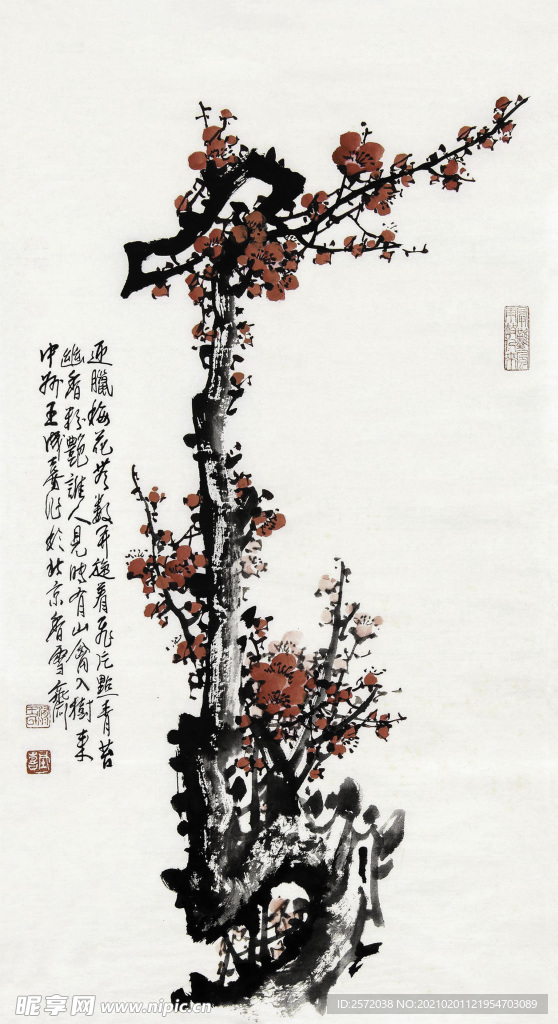 迎臘梅花無数開旋看飛片點青苔
幽香粉艷誰人見時有山禽入樹来
中州王成喜作於北京香雪齋
昵享网 www.nipic.cn
ID:2572038 NO:20210201121954703089